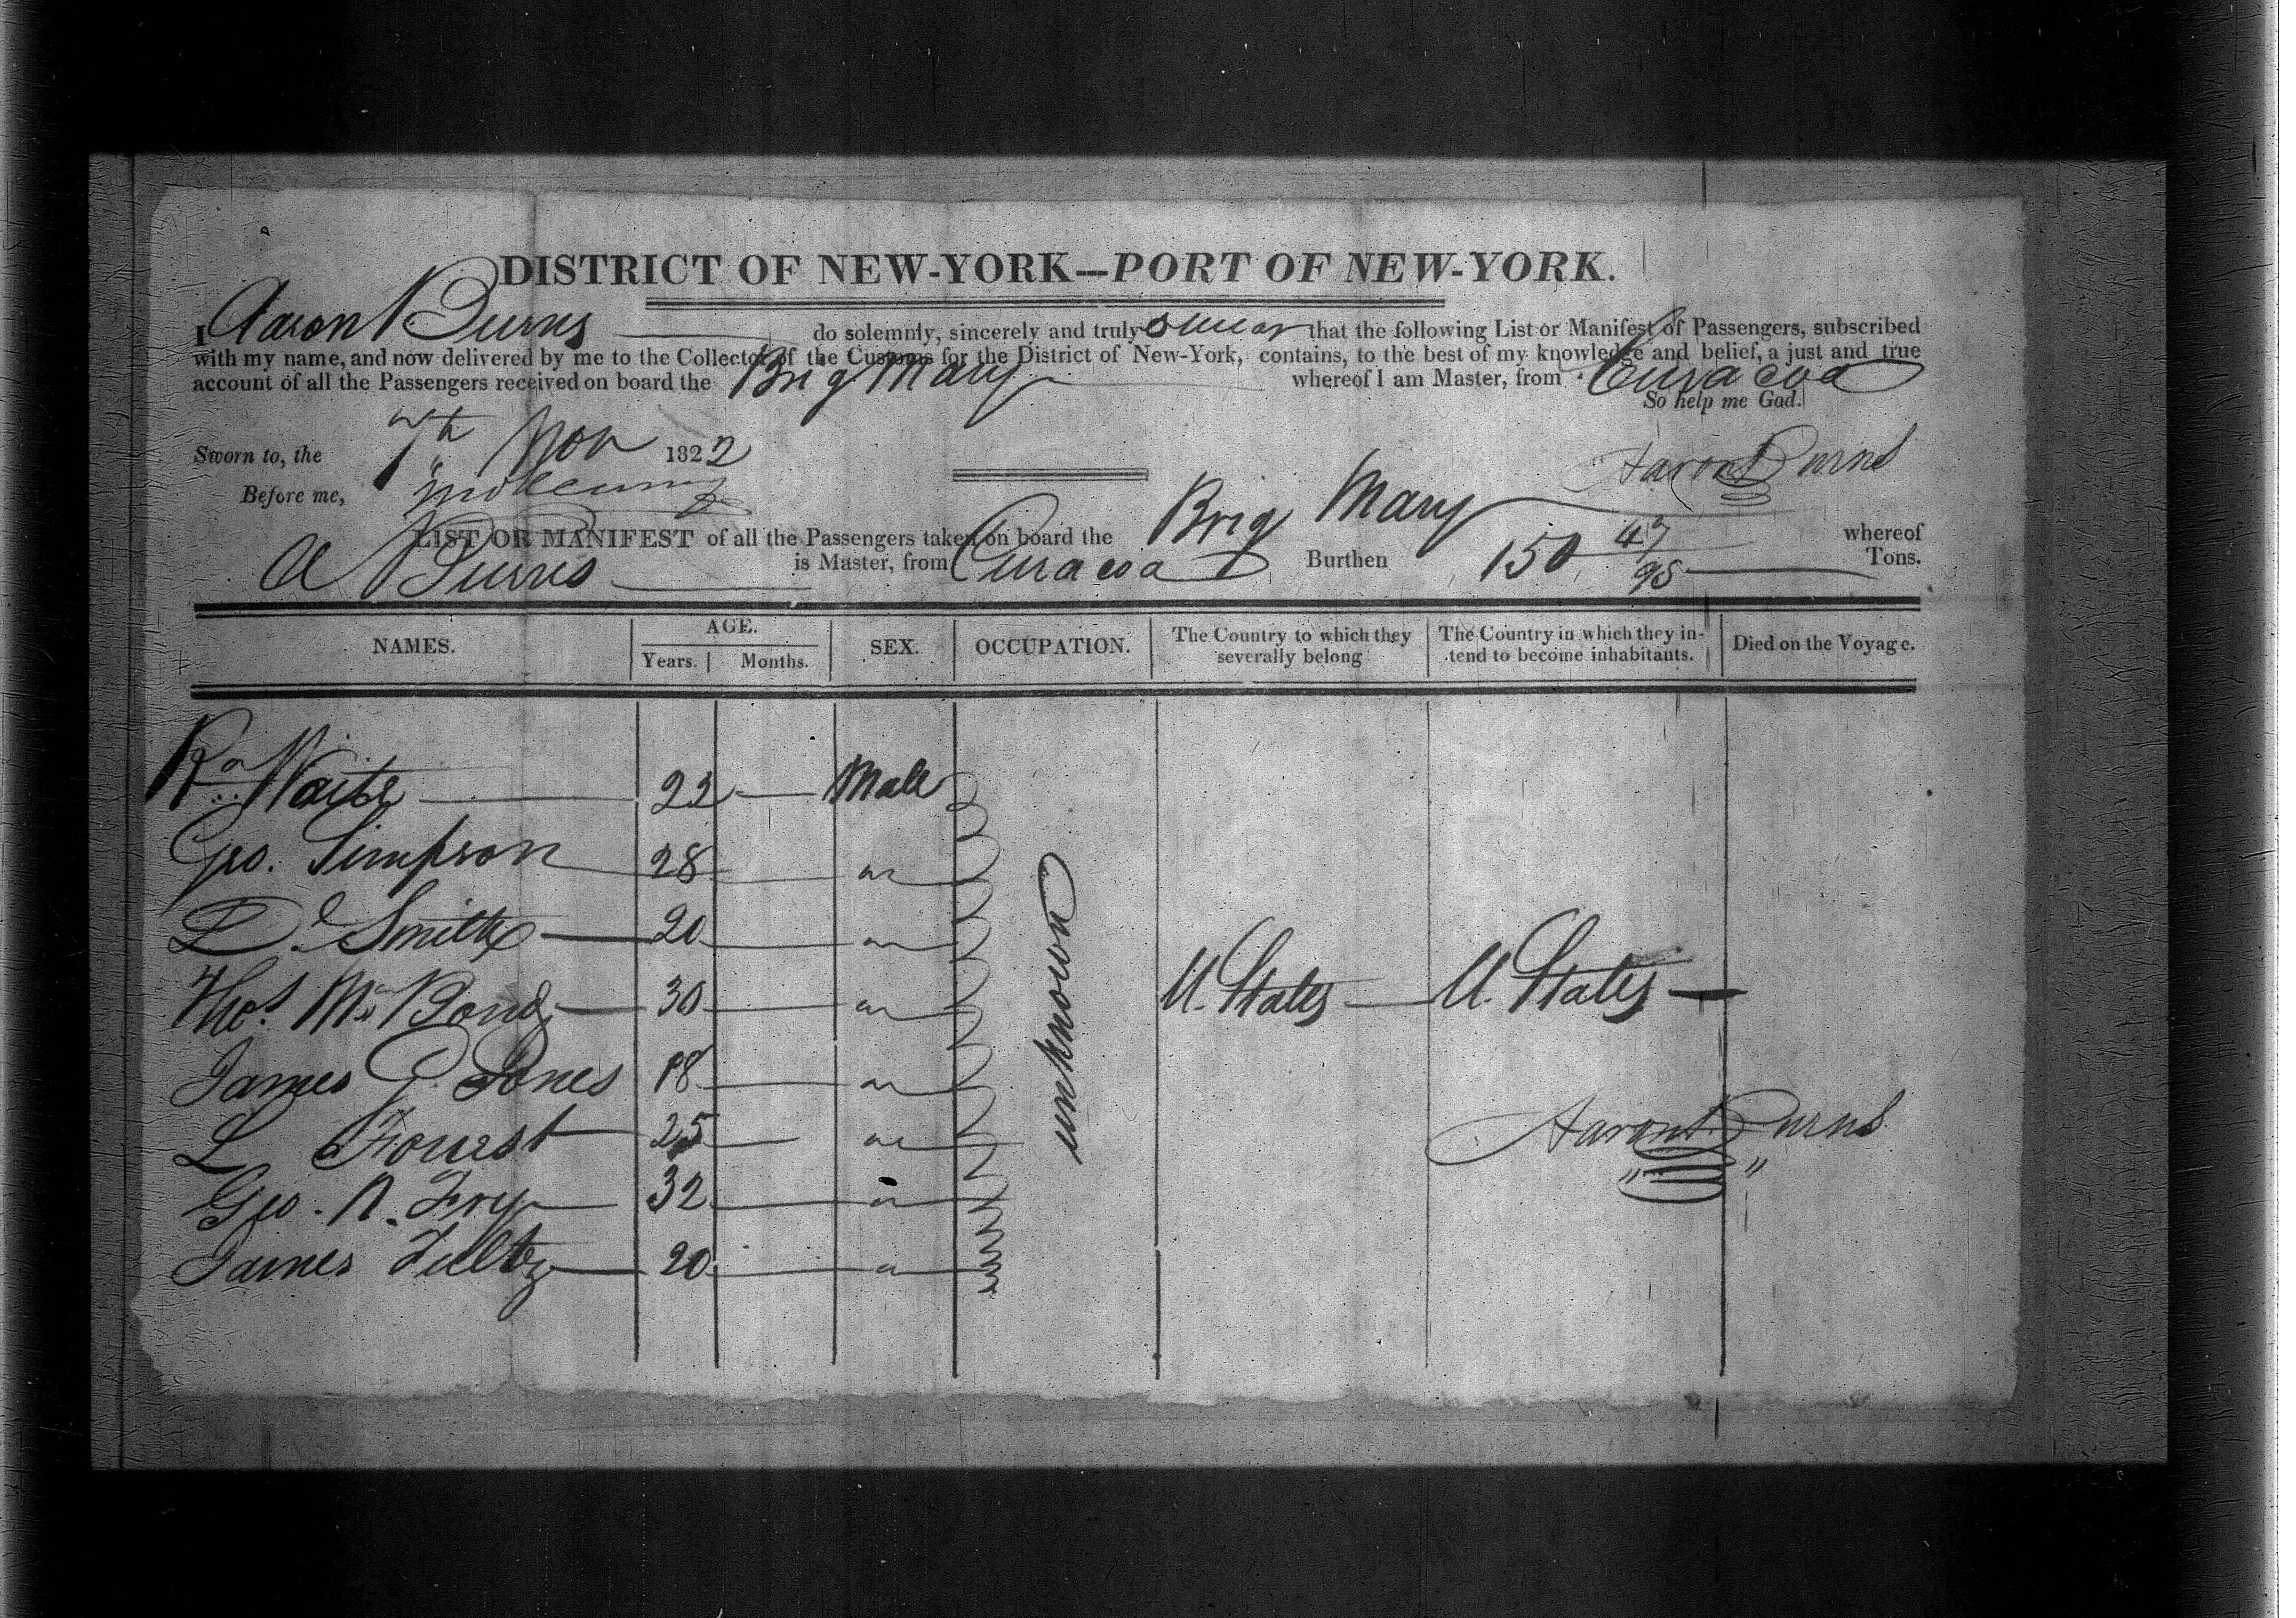 DISTRICT OF NEW-YORK—PORT OF NEW-YORK.
I Aaron Burns do solemnly, sincerely and truly swear that the following List or Manifest of Passengers, subscribed
with my name, and now delivered by me to the Collector of the Customs for the District of New-York, contains, to the best of my knowledge and belief, a just and true
account of all the Passengers received on board the Brig Mary whereof I am Master, from Curacoa
So help me God.
Sworn to, the 7th Nov 1822
Aaron Burns
Before me,
LIST OR MANIFEST of all the Passengers taken on board the Brig Mary whereof
A Burns is Master, from Curacoa Burthen 150 47/95 Tons.
NAMES. AGE. SEX. OCCUPATION. The Country to which they severally belong The Country in which they intend to become inhabitants. Died on the Voyage.
Years. Months.
Waite 23 — Male
Geo. Simpson 28 "
D. Smith 20 "
Thos. M. Bond 30 "
unknown
U. States — U. States —
James G. Jones 18 "
L Forrest 25 "
Aaron Burns
Geo. N. Fry 32 "
James 20 "